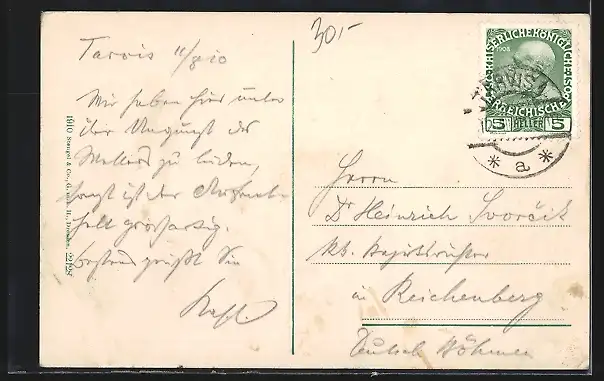 Tarvis 11/8 10
Wir haben hier unter
der Ungunst des
Wetters zu leiden,
sonst ist der Aufent-
halt großartig.
Bestens grüßt Sie
1910 Stengel & Co., G. m. b. H., Dresden.
30,-
KAISERLICHE KÖNIGLICHE ÖSTERREICHISCHE
1908
5 HELLER 5
TARVIS
* a *
Herrn
Dr Heinrich Svorčik
kk. Bezirksrichter
in Reichenberg
Deutsch Böhmen